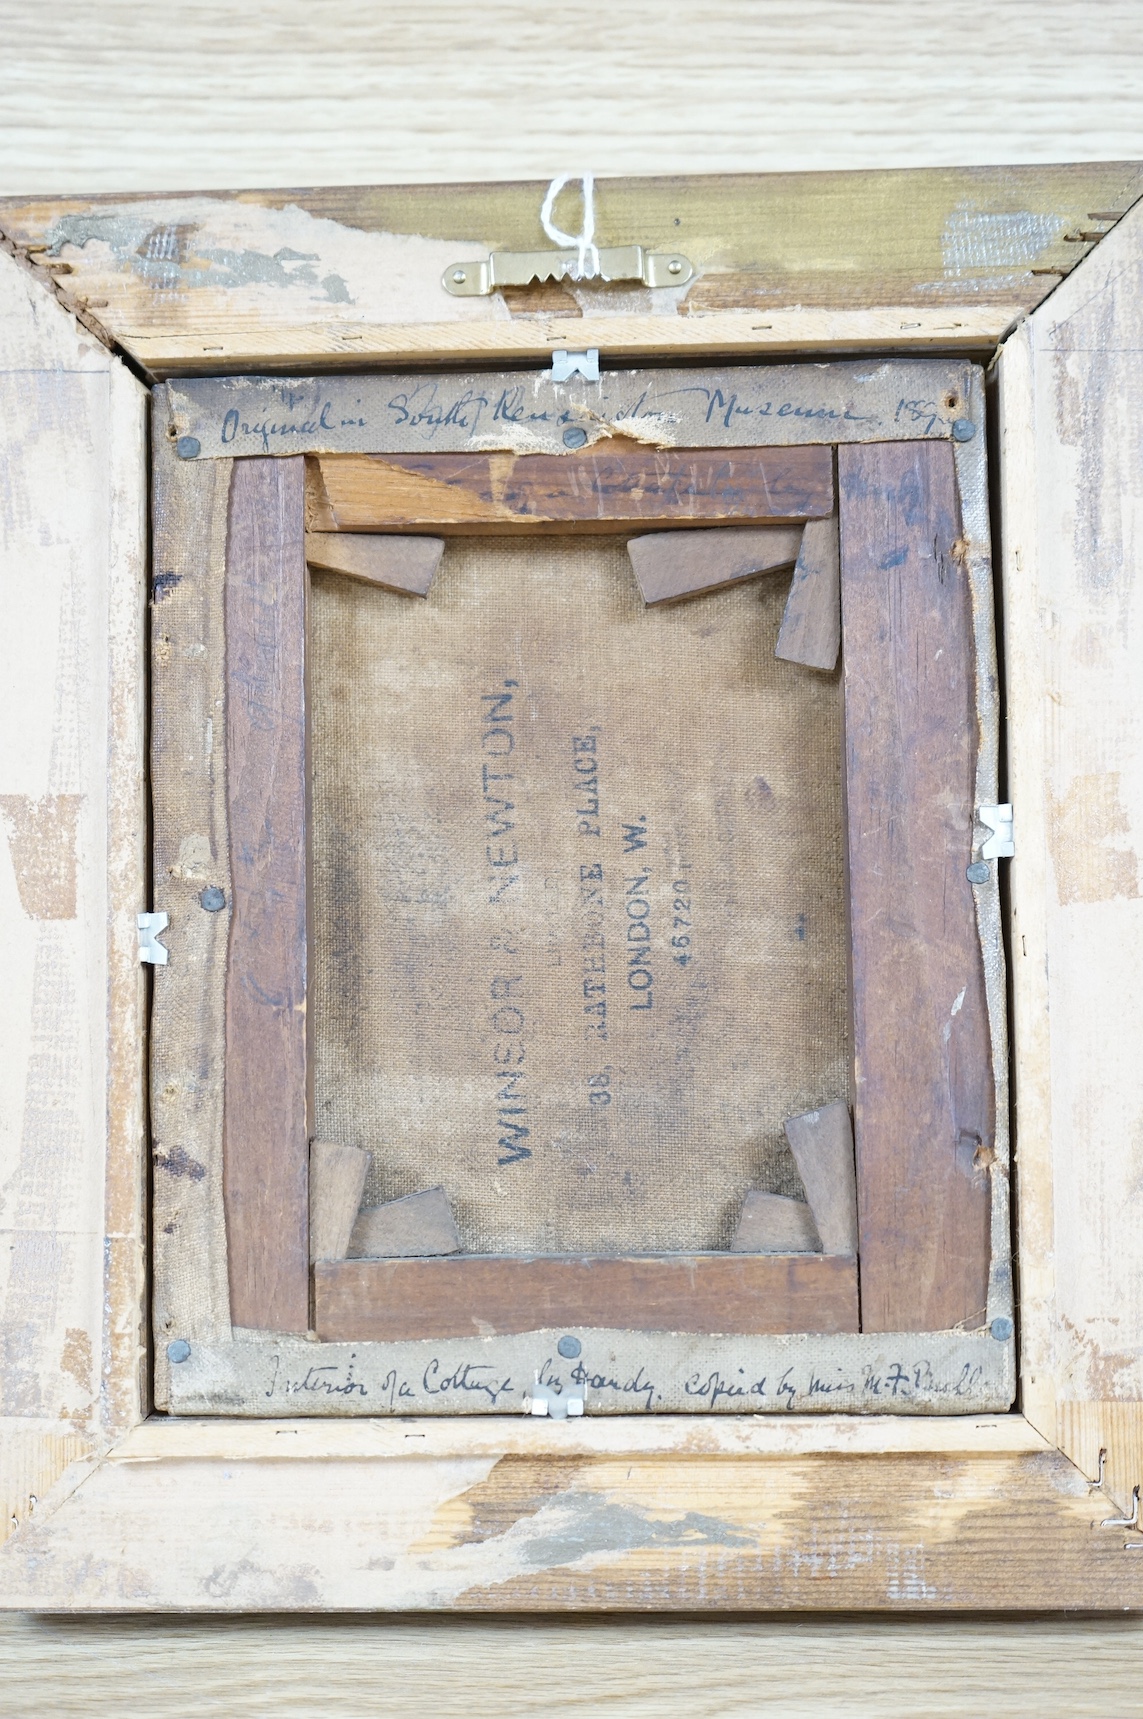 Original in South Kensington Museum. 189
by
WINSOR & NEWTON,
38, RATHBONE PLACE,
LONDON, W.
46720
Interior of a Cottage, by Hardy. copied by Miss M. F.